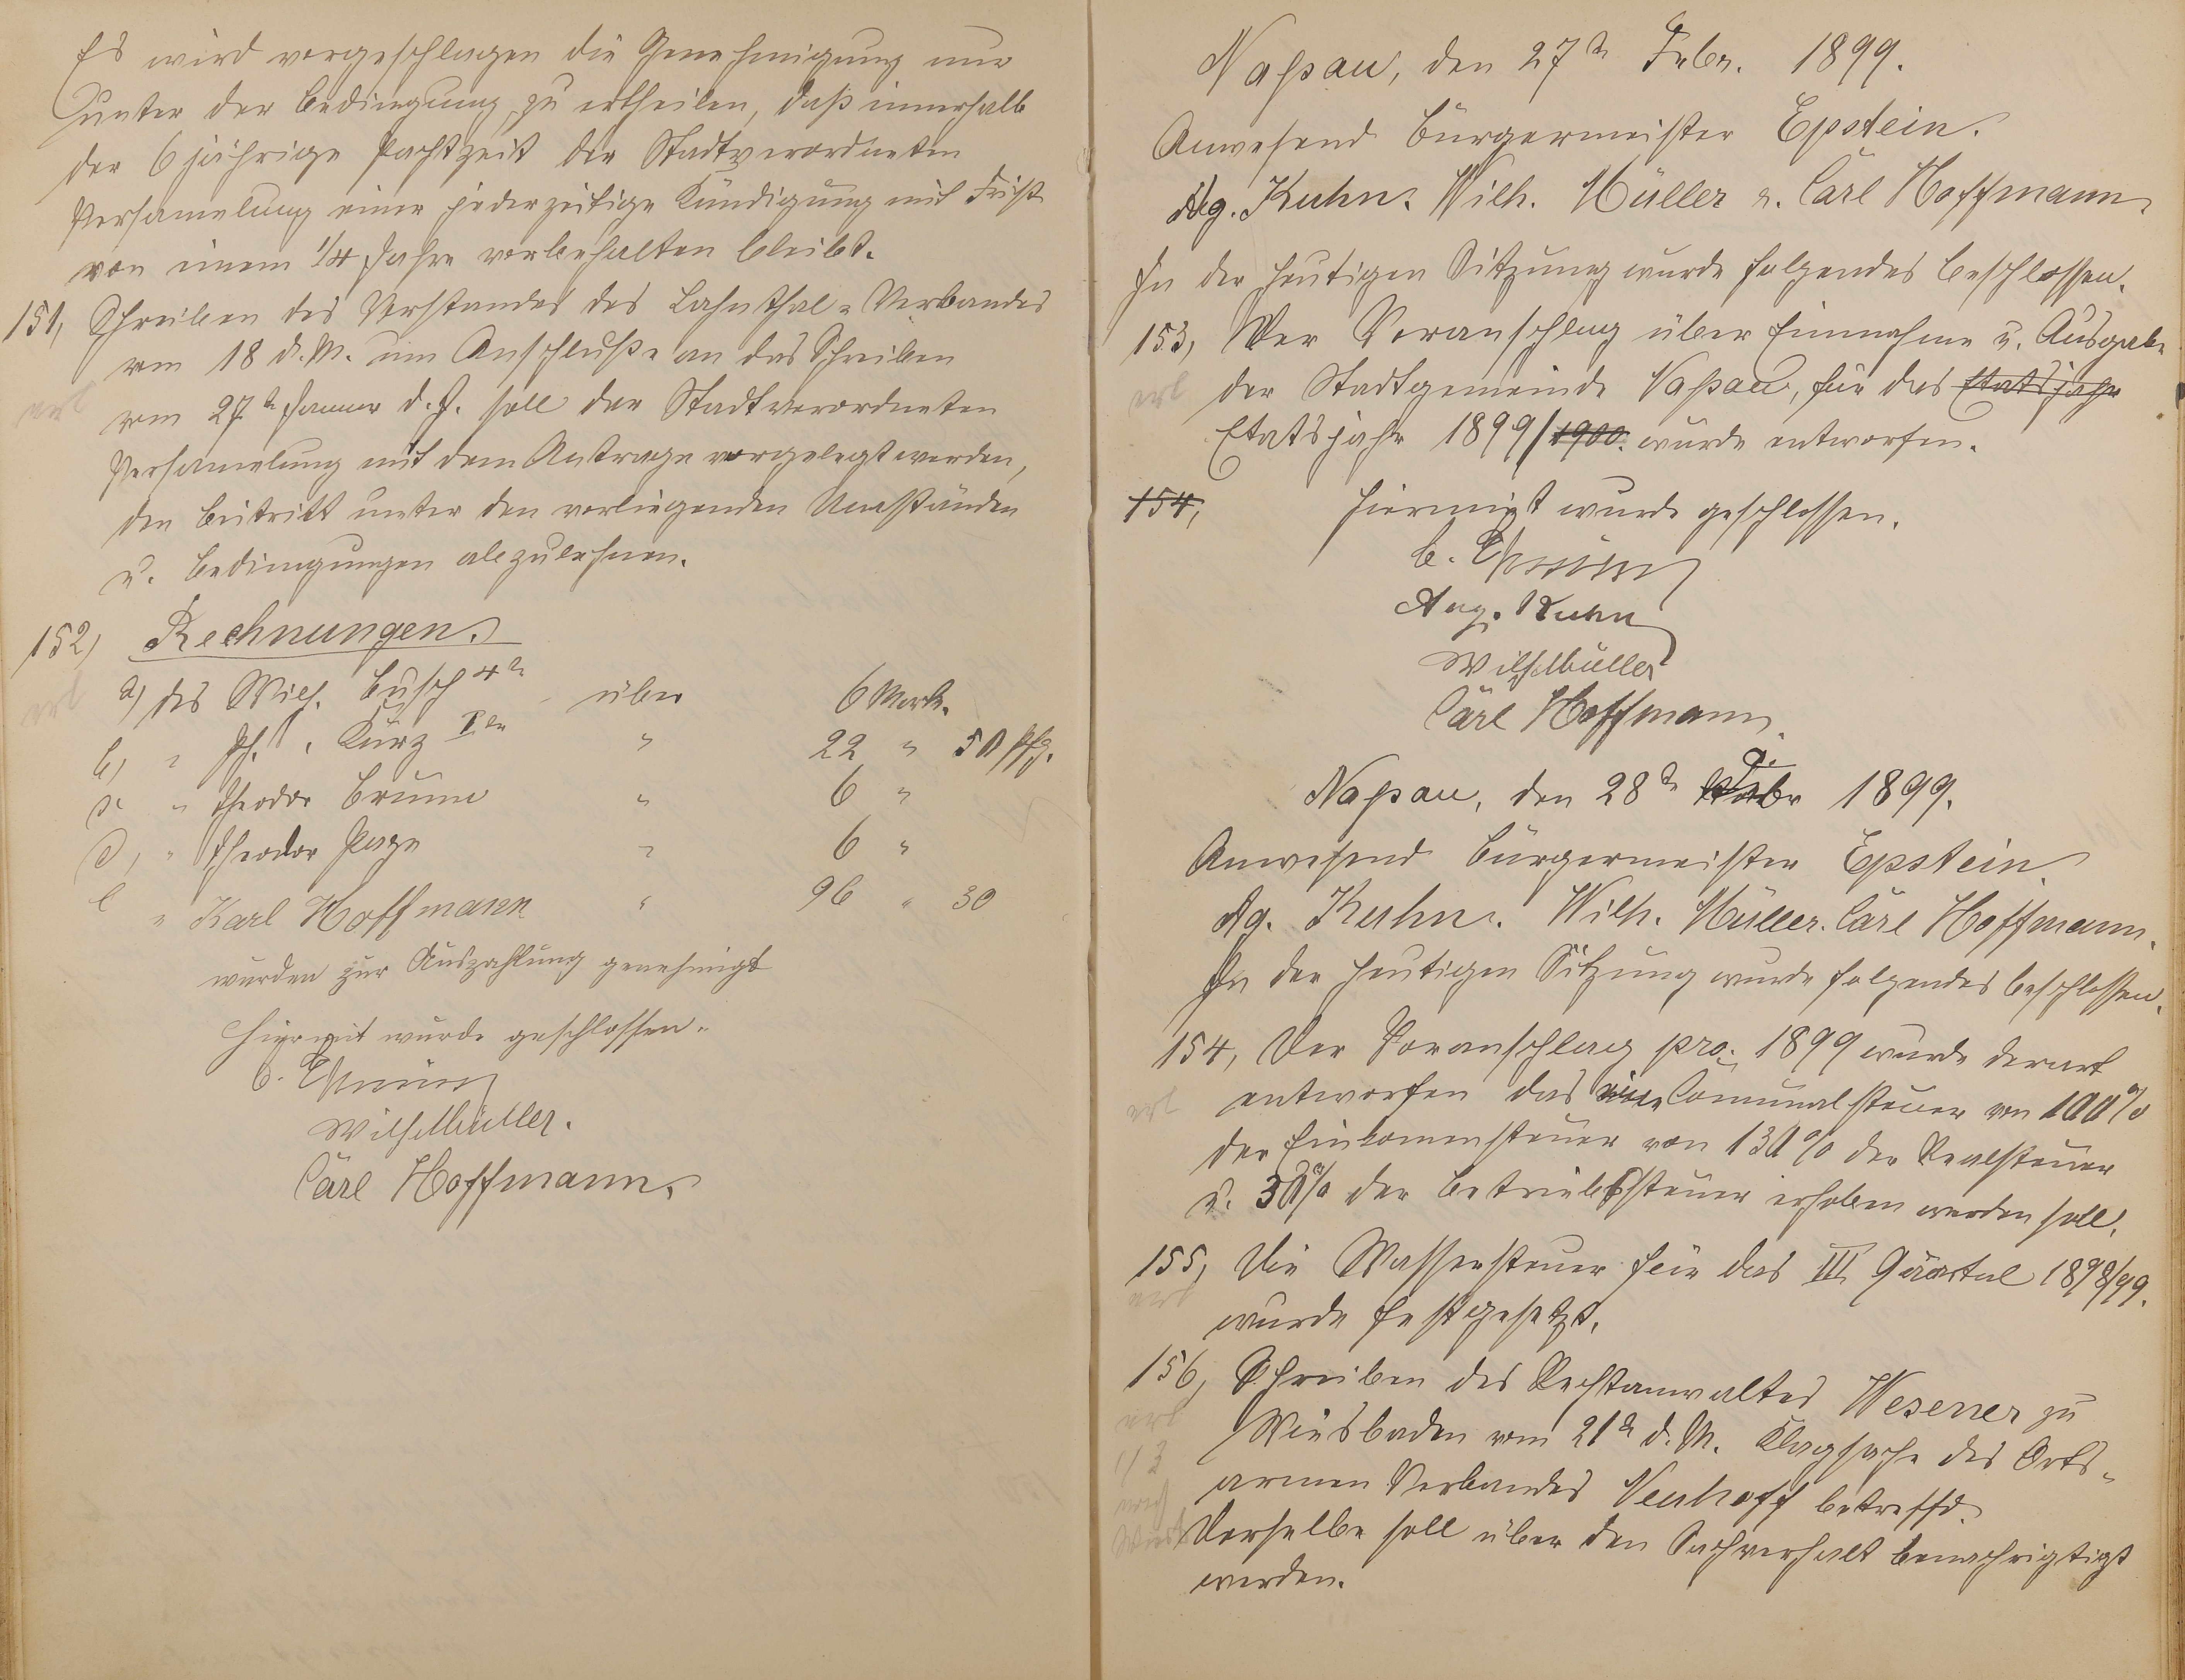 Es wird vorgeschlagen die Genehmigung nur
unter der Bedingung zu ertheilen, daß innerhalb
der 6 jährige Pachtzeit der Stadtverordneten
Versamelung eine jederzeitige Kündigung mit Frist
von einem 1/4 Jahre vorbehalten bleibt.
151, Schreiben des Vorstandes des Lahnthal-Verbandes
vom 18 d. M. im Anschluße an das Schreiben
erl
vom 27t Januar d. J. soll der Stadtverordneten
Versamelung mit dem Antrage vorgelegt werden,
den Beitritt unter den vorliegenden Umständen
u. Bedingungen abzulehnen.
152, Rechnungen.
erl
a, des Wilh. Busch 4r über 6 Mark.
b, " Ph. Kurz Ier " 22 " 50 Pfg.
c " Theodor Brumm " 6 "
d, " Theodor Page " 6 "
e " Karl Hoffmann " 96 " 30
wurden zur Auszahlung genehmigt
Hiermit wurde geschlossen.
Wilh. Müller.
Carl Hoffmann.
Naßau, den 27t Febr. 1899.
Anwesend Bürgermeister Epstein.
Aug. Kuhn. Wilh. Müller u. Carl Hoffmann.
In der heutigen Sitzung wurde folgendes beschlossen.
153, Der Voranschlag über Einnahme u. Ausgabe
erl
der Stadtgemeinde Naßau, für das Etatsjahr
Etatsjahr 1899/1900. wurde entworfen.
154, Hiermit wurde geschlossen.
Aug. Kuhn
Wilh. Müller
Carl Hoffmann.
Naßau, den 28t Febr 1899.
Anwesend Bürgermeister Epstein.
Ag. Kuhn. Wilh. Müller. Carl Hoffmann.
In der heutigen Sitzung wurde folgendes beschlossen.
154, Der Voranschlag pro. 1899 wurde derart
erl
entworfen das eine Comunalsteuer von 100%
der Einkomensteuer von 130% der Realsteuer
u. 30% der Betriebssteuer erhoben werden soll.
155, Die Wassersteuer für das III Quartal 1898/99.
erl
wurde festgesetzt.
156, Schreiben des Rechtanwaltes Wesener zu
erl
Wiesbaden vom 21t d. M. Klagsache des Orts-
1/3
armen Verbandes Neuhoff betreffd.
Derselbe soll über den Sachverhalt benachrigtigt
werden.